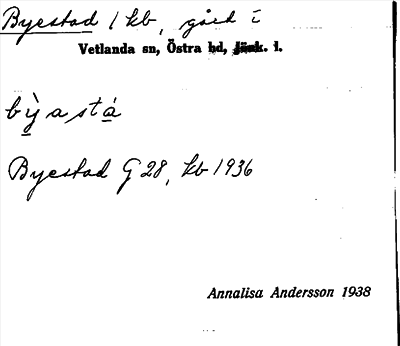 Byestad 1 kb, gård i
Vetlanda sn, Östra hd, Jönk. l.
bỳastá
Byestad G 28, kb 1936
Annalisa Andersson 1938